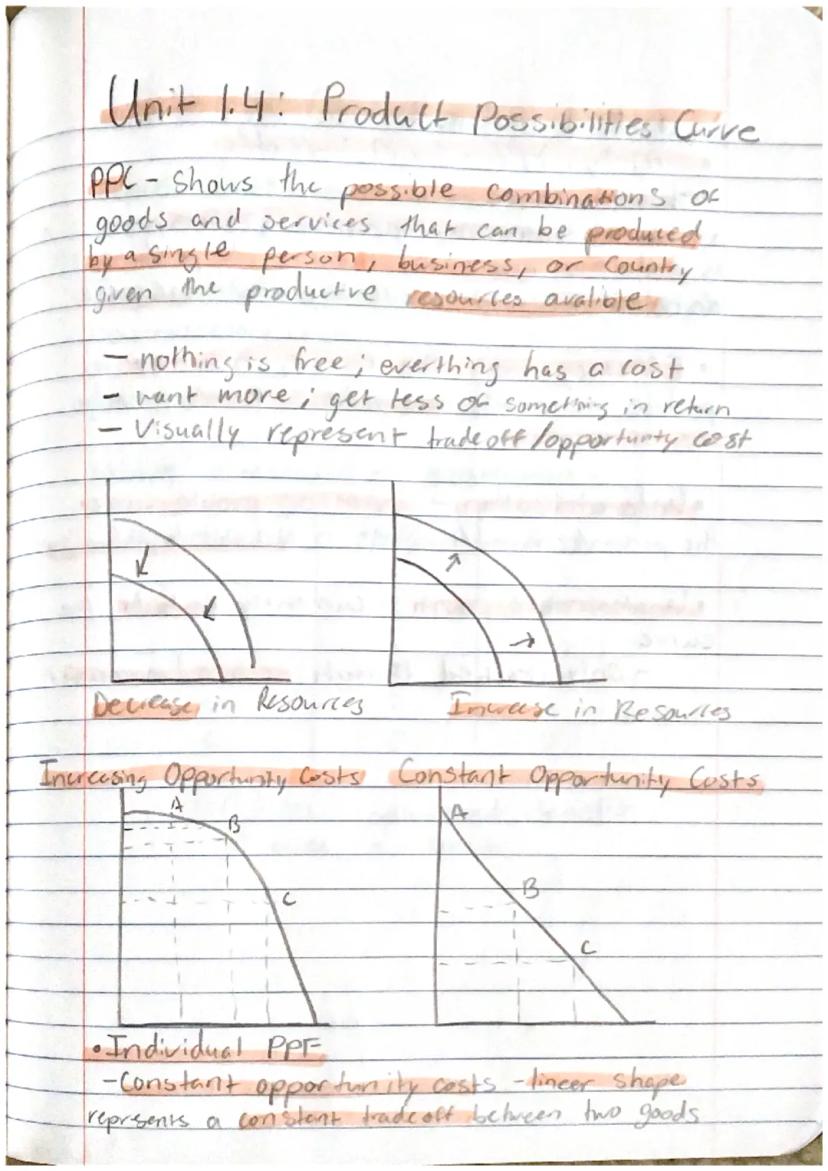 Unit 1.4: Product Possibilities Curve
PPC - Shows the possible combinations of
goods and services that can be produced
by a single person, business, or country
given the productive resources avalible
- nothing is free; everthing has a cost
- want more; get less of something in return
- Visually represent tradeoff/opportunty cost
Decrease in Resources
Increase in Resources
Increasing Opportunity Costs
Constant Opportunity Costs
A
B
C
A
B
C
• Individual PPF
- Constant opportunity costs - lineer shape
represents a constant tradeoff between two goods